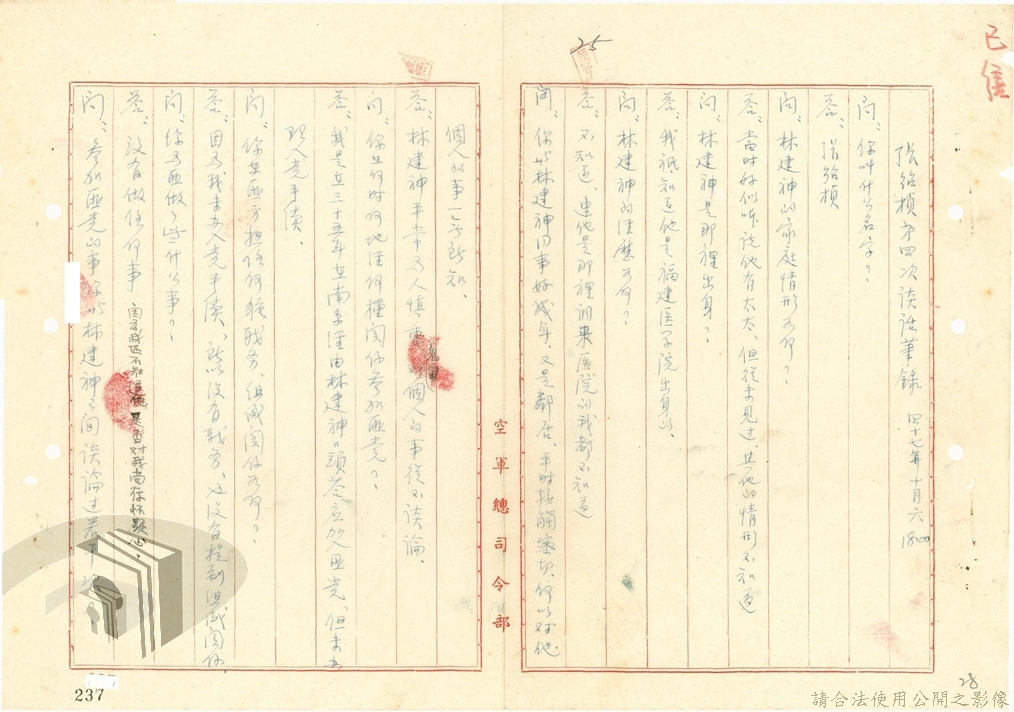 已售
張紹楨第四次談話筆錄 四十七年十月六 1800
問:你叫什么名字?
答:張紹楨
問:林建神的家庭情形如何?
答:當時好似听說他有太太、但從未見过、其他的情形不知道
問:林建神是那裡出身?
答:我祇知道他是福建医学院出身的、
問:林建神的經歷如何?
答:不知道、連他是那裡調來医院的我都不知道
問:你與林建神同事好幾年、又是鄰居、平时接觸密切、何以对他
25
空軍總司令部
個人的事一无所知、
答:林建神平常为人慎重、個人的事從不談論、
問:你在何时何地經何種関係參加匪党?
答:我是在三十五年在南京經由林建神口頭答应加入匪党、但未办
理入党手續、
問:你在匪方担任何種職务、組織関係如何?
答:因为我未办入党手續、所以沒有職务、也沒有接到組織関係、
問:你为匪做了些什么事?
答:沒有做任何事 問
問:參加匪党的事你與林建神之间談論过若干次
237
28
請合法使用公開之影像